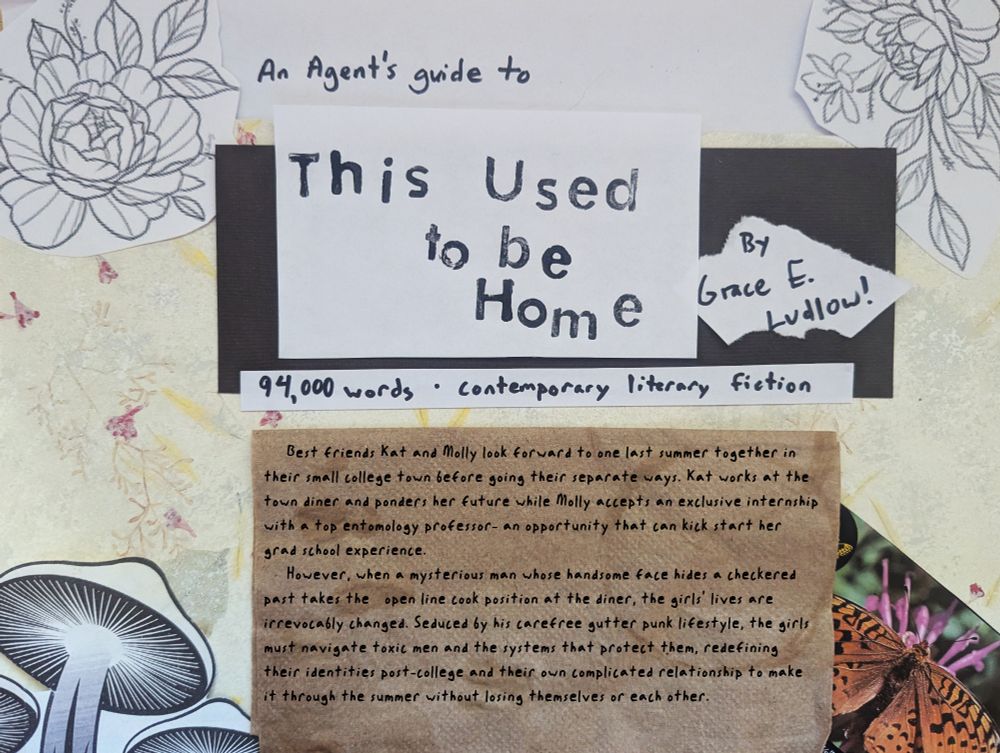 An Agent's guide to
This Used
to be
Home
By
Grace E.
Ludlow!
94,000 words · contemporary literary fiction
Best friends Kat and Molly look forward to one last summer together in
their small college town before going their separate ways. Kat works at the
town diner and ponders her future while Molly accepts an exclusive internship
with a top entomology professor- an opportunity that can kick start her
grad school experience.
However, when a mysterious man whose handsome face hides a checkered
past takes the open line cook position at the diner, the girls' lives are
irrevocably changed. Seduced by his carefree gutter punk lifestyle, the girls
must navigate toxic men and the systems that protect them, redefining
their identities post-college and their own complicated relationship to make
it through the summer without losing themselves or each other.